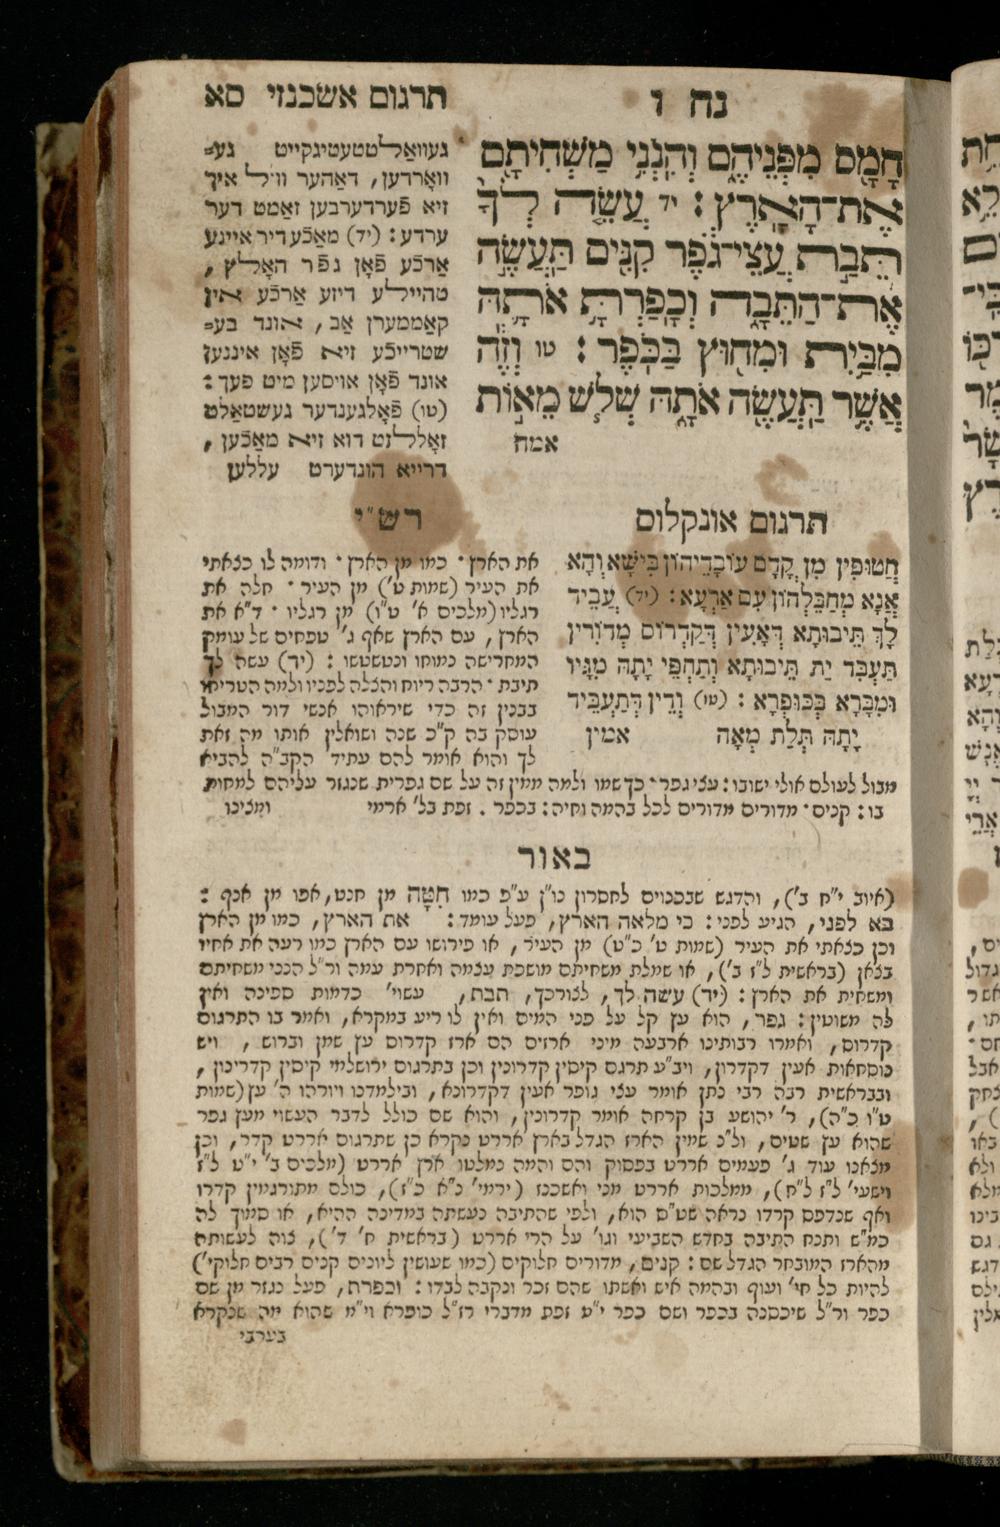 נח ו
תרגום אשכנזי סא
חָמָס מִפְּנֵיהֶם וְהִנְנִי מַשְׁחִיתָם
אֶת־הָאָרֶץ : יד עֲשֵׂה לְךָ
תֵּבַת עֲצֵי־גֹפֶר קִנִּים תַּעֲשֶׂה
אֶת־הַתֵּבָה וְכָפַרְתָּ אֹתָהּ
מִבַּיִת וּמִחוּץ בַּכֹּפֶר : טו וְזֶה
אֲשֶׁר תַּעֲשֶׂה אֹתָהּ שְׁלֹשׁ מֵאוֹת
אמח
געוואַלטטעטיגקייט גע=
וואָרדען, דאַהער וויל איך
זיא פֿערדערבען זאַמט דער
ערדע : (יד) מאַכֿע דיר איינע
אַרכֿע פֿאָן גפֿר האָלץ ,
טהיילע דיזע אַרכֿע אין
קאַממערן אַב, אונד בע=
שטרייכֿע זיא פֿאָן איננען
אונד פֿאָן אויסען מיט פעך :
(טו) פֿאָלגענדער געשטאַלט
זאָללזט דוא זיא מאַכֿען ,
דרייא הונדערט עללען
תרגום אונקלוס
חֲטוּפִין מִן קֳדָם עוֹבָדֵיהוֹן בִּישָׁא וְהָא
אֲנָא מְחַבֵּלְהוֹן עִם אַרְעָא : (יד) עֲבֵיד
לָךְ תֵּיבוּתָא דְּאָעִין דְּקַדְרוֹם מְדוֹרִין
תַּעְבֵּד יַת תֵּיבוּתָא וְתַחְפֵּי יָתַהּ מִגָּיו
וּמִבָּרָא בְּכוּפְרָא : (טו) וְדֵין דְּתַעְבֵּיד
יָתַהּ תְּלַת מְאָה אמין
רש"י
את הארץ · כמו מן הארץ · ודומה לו כצאתי
את העיר (שמות ט') מן העיר · חלה את
רגליו (מלכים א' ט"ו) מן רגליו · ד"א את
הארץ , עם הארץ שאף ג' טפחים של עומק
המחרישה נמוחו ונטשטשו : (יד) עשה לך
תיבת · הרבה ריוח והצלה לפניו ולמה הטריחו
בבנין זה כדי שיראוהו אנשי דור המבול
עוסק בה ק"כ שנה ושואלין אותו מה זאת
לך והוא אומר להם עתיד הקב"ה להביא
מבול לעולם אולי ישובו : עצי גפר · כך שמו ולמה ממין זה על שם גפרית שנגזר עליהם למחות
בו : קנים · מדורים מדורים לכל בהמה וחיה : בכפר . זפת בל' ארמי ומצינו
באור
(איוב י"ח ב'), והדגש שבכנויים לחסרון נו"ן ע"פ כמו חִטָּה מן חנט, אפו מן אנף :
בא לפני, הגיע לפני : כי מלאה הארץ, פעל עומד : את הארץ, כמו מן הארץ
וכן כצאתי את העיר (שמות ט' כ"ט) מן העיר, או פירושו עם הארץ כמו רעה את אחיו
בצאן (בראשית ל"ז ב'), או שמלת משחיתם מושכת עצמה ואחרת עמה ור"ל הנני משחיתם
ומשחית את הארץ : (יד) עשה לך, לצורכך, תבת, עשוי' כדמות ספינה ואין
לה משוטין : גפר, הוא עץ קל על פני המים ואין לו ריע במקרא, ואמר בו התרגום
קדרום, ואמרו רבותינו ארבעה מיני ארזים הם ארז קדרום עץ שמן וברוש , ויש
נוסחאות אעין דקדרון, ויב"ע תרגם קיסין קדרונין וכן בתרגום ירושלמי קיסין קדרינון ,
ובבראשית רבה רבי נתן אומר עצי גופר אעין דקדרונא, ובילמדנו ויורהו ה' עץ (שמות
ט"ו כ"ה), ר' יהושע בן קרחה אומר קדרונין, והוא שם כולל לדבר העשוי מעץ גפר
שהוא עץ שטים, ול"נ שמין הארז הגדל בארץ אררט נקרא כן שתרגום אררט קדר, וכן
מצאנו עוד ג' פעמים אררט בפסוק והם והמה נמלטו ארץ אררט (מלכים ב' י"ט ל"ז
וישעי' ל"ז ל"ח), ממלכות אררט מני ואשכנז (ירמי' נ"א כ"ז), כולם מתורגמין קדרו
ואף שנדפס קרדו נראה שט"ס הוא, ולפי שהתיבה נעשתה במדינה ההיא, או סמוך לה
כמ"ש ותנח התיבה בחדש השביעי וגו' על הרי אררט (בראשית ח' ד'), צוה לעשותה
מהארז המובחר הגדל שם : קנים, מדורים חלוקים (כמו שעושין ליונים קנים רבים חלוקי')
להיות כל חי' ועוף ובהמה איש ואשתו שהם זכר ונקבה לבדו : וכפרת, פעל נגזר מן שם
כפר ור"ל שיכסנה בכפר ושם כפר י"ע זפת מדברי רז"ל כופרא וי"מ שהוא מה שנקרא
בערבי